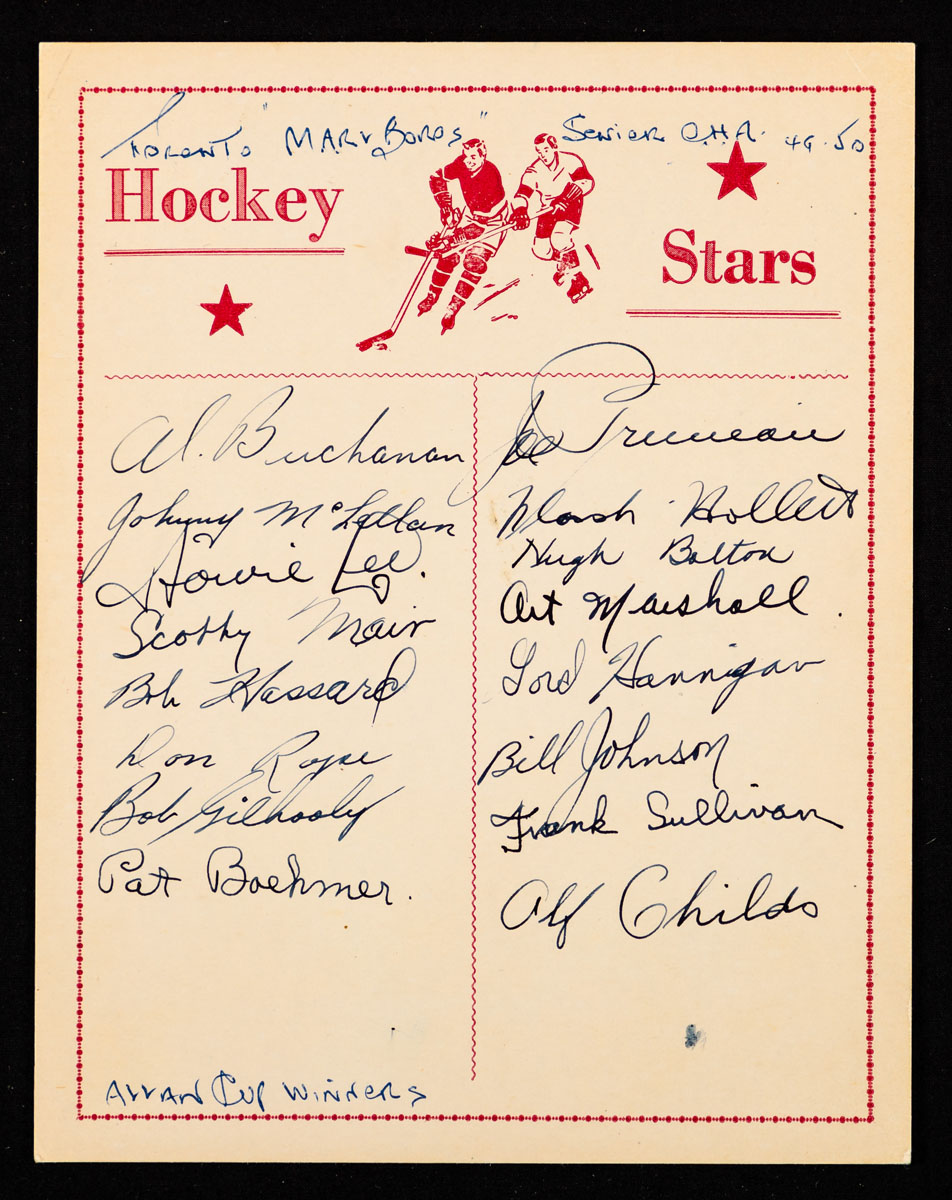 Toronto "Marlboros" Senior O.H.A. 49-50
Hockey
Stars
Al. Buchanan
Johnny McLellan
Howie Lee.
Scotty Mair
Bob Hassard
Don Rope
Bob Gilhooly
Pat Boehmer.
Joe Primeau
Flash Hollett
Hugh Bolton
Art Marshall.
Gord Hannigan
Bill Johnson
Frank Sullivan
Alf Childs
Allan Cup Winners